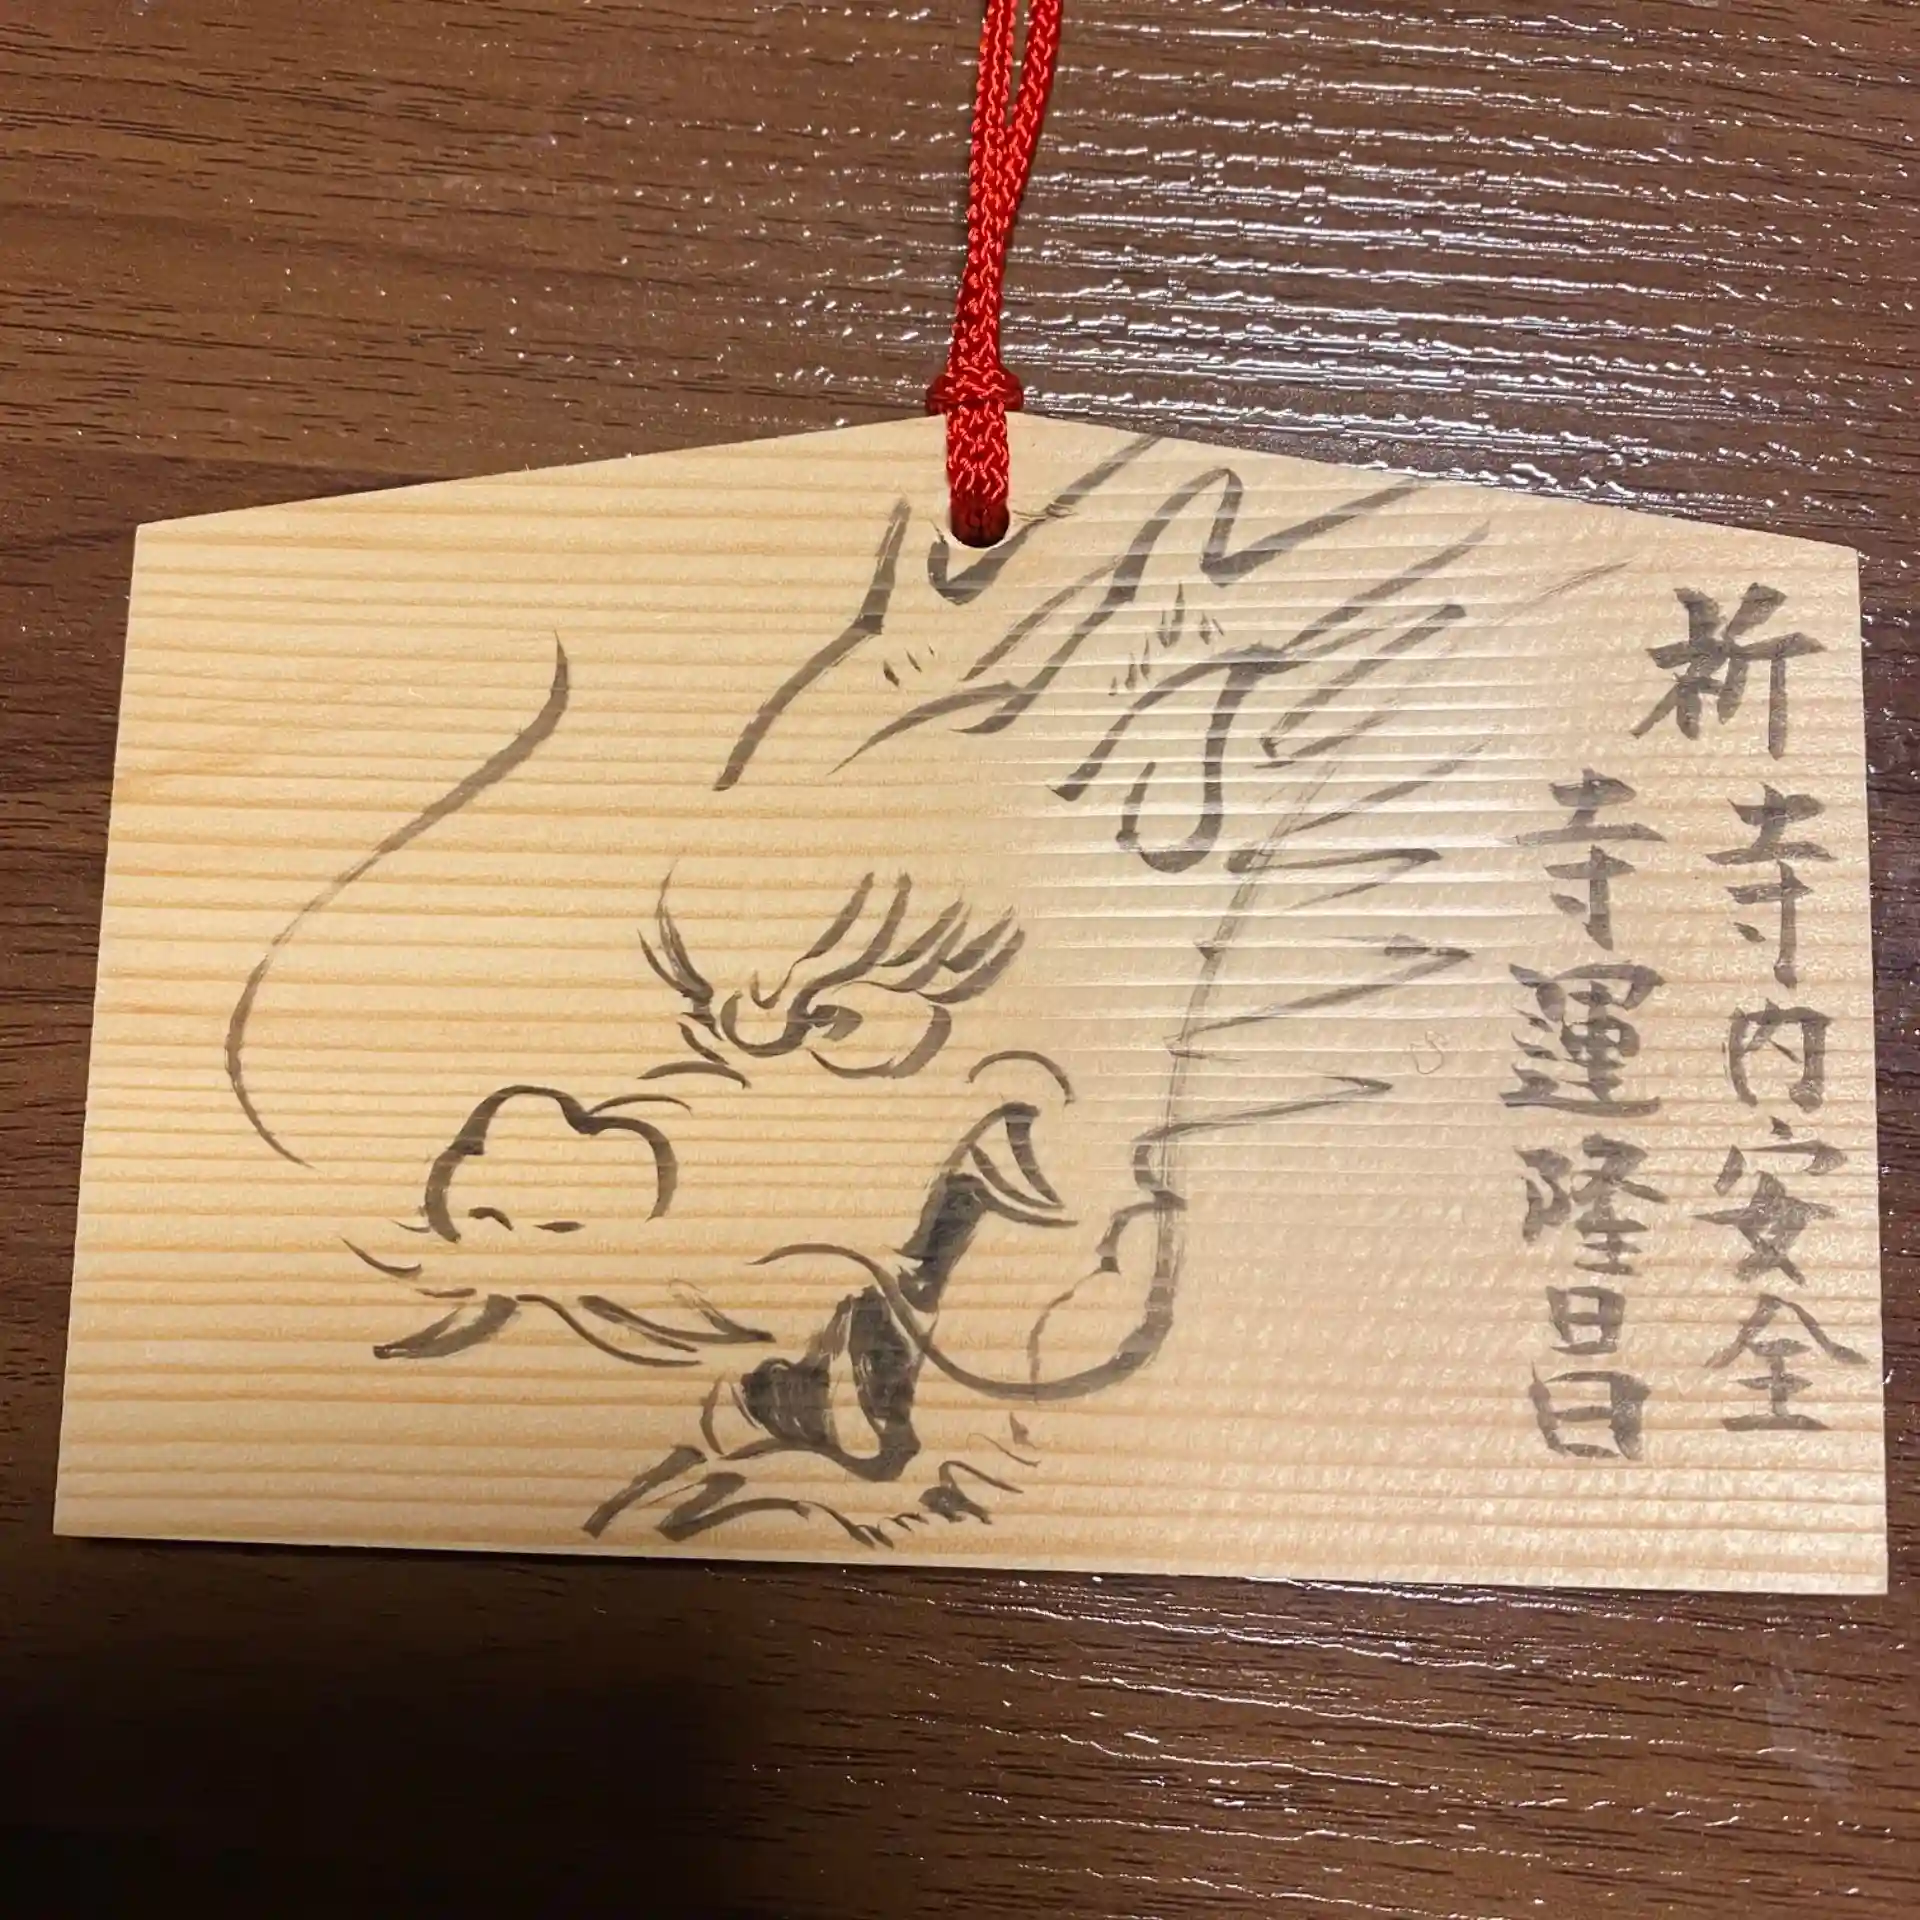 祈
寺内安全
寺運隆昌